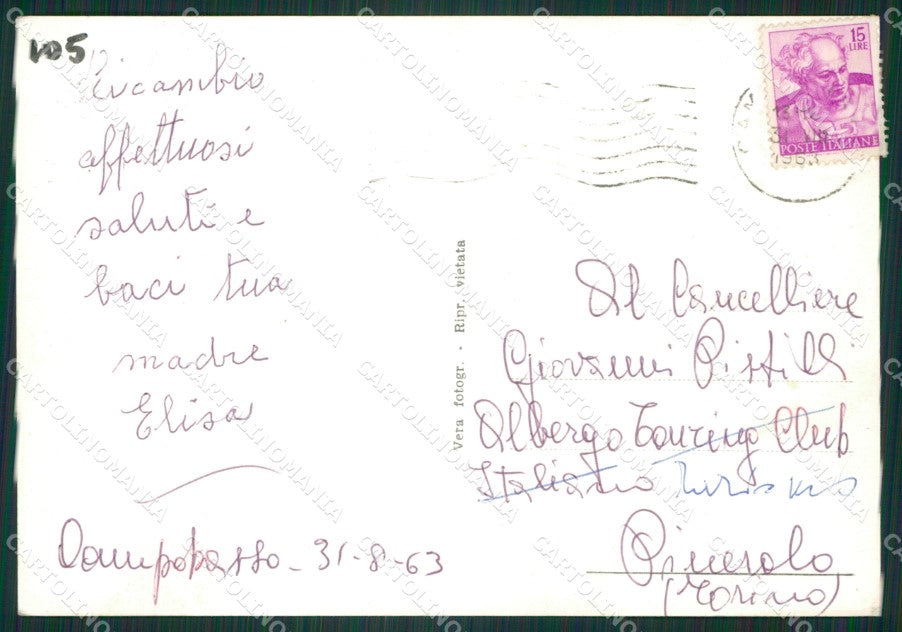 105
Ricambio
affettuosi
saluti e
baci tua
madre
Elisa
Campobasso - 31-8-63
Vera fotogr. - Ripr. vietata
15
LIRE
POSTE ITALIANE
1963
Al Cancelliere
Giovanni Pistilli
Albergo Touring Club
Italiano Turismo
Pinerolo
(Torino)
CARTOLINOMANIA